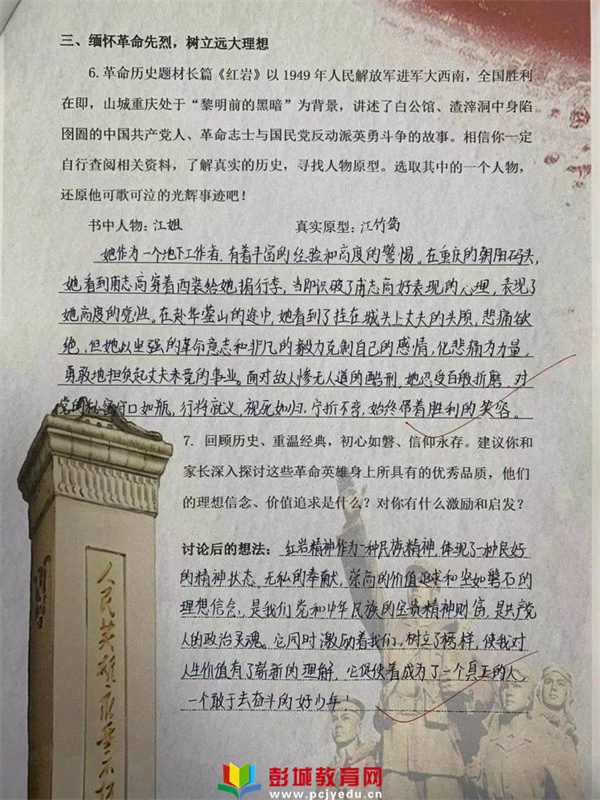 三、缅怀革命先烈，树立远大理想
6.革命历史题材长篇《红岩》以 1949 年人民解放军进军大西南，全国胜利
在即，山城重庆处于“黎明前的黑暗”为背景，讲述了白公馆、渣滓洞中身陷
囹圄的中国共产党人、革命志士与国民党反动派英勇斗争的故事。相信你一定
自行查阅相关资料，了解真实的历史，寻找人物原型。选取其中的一个人物，
还原他可歌可泣的光辉事迹吧！
书中人物：江姐 真实原型：江竹筠
她作为一个地下工作者，有着丰富的经验和高度的警惕。在重庆的朝阳码头，
她看到甫志高穿着西装给她捐行李，当即识破了甫志高好表现的心理，表现了
她高度的党性。在赴华蓥山的途中，她看到了挂在城头上丈夫的头颅，悲痛欲
绝，但她以坚强的革命意志和非凡的毅力克制自己的感情，化悲痛为力量，
勇敢地担负起丈夫未竟的事业。面对敌人惨无人道的酷刑，她忍受百般折磨，对
党的秘密守口如瓶，行将就义，视死如归，宁折不弯，始终带着胜利的笑容。
7. 回顾历史、重温经典，初心如磐、信仰永存。建议你和
家长深入探讨这些革命英雄身上所具有的优秀品质，他们
的理想信念、价值追求是什么？对你有什么激励和启发？
讨论后的想法：红岩精神作为一种民族精神，体现了一种良好
的精神状态、无私的奉献，崇高的价值追求和坚如磐石的
理想信念，是我们党和中华民族的宝贵精神财富，是共产党
人的政治灵魂。它同时激励着我们，树立了榜样，使我对
人生价值有了崭新的理解，它促使着成为了一个真正的人，
一个敢于去奋斗的好少年！
人民英雄永垂不朽
彭城教育网
www.pcjyedu.cn